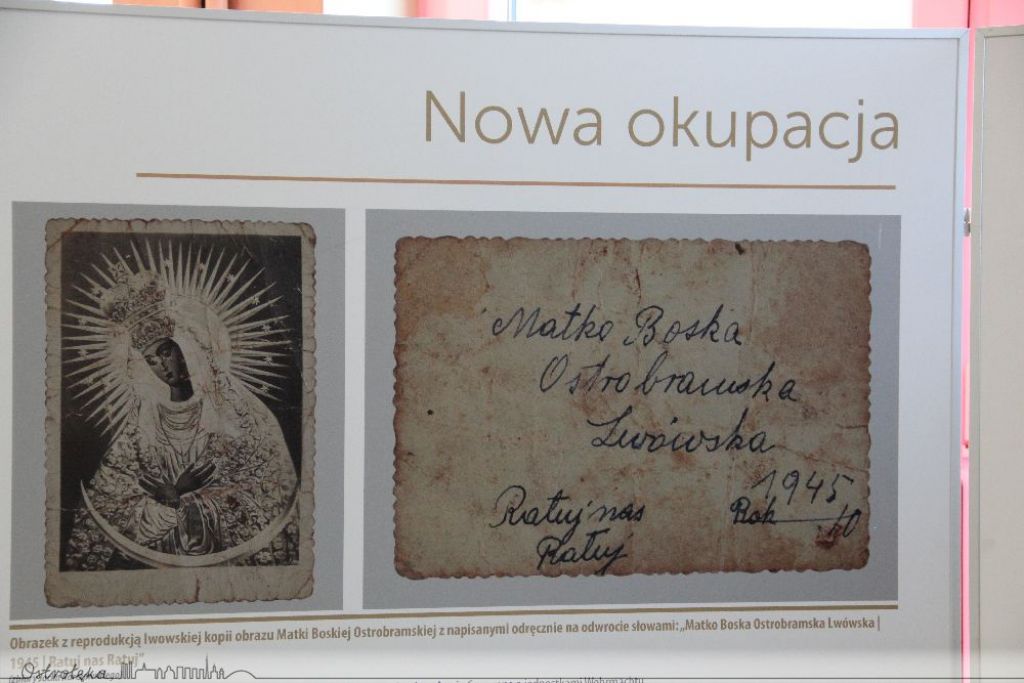 Nowa okupacja
Matko Boska
Ostrobramska
Lwowska
1945
Rok 10
Ratuj nas
Ratuj
Obrazek z reprodukcją lwowskiej kopii obrazu Matki Boskiej Ostrobramskiej z napisanymi odręcznie na odwrocie słowami: „Matko Boska Ostrobramska Lwówska |
1945 | Ratuj nas Ratuj”
Ostrołęka
z jednostkami Wehrmachtu